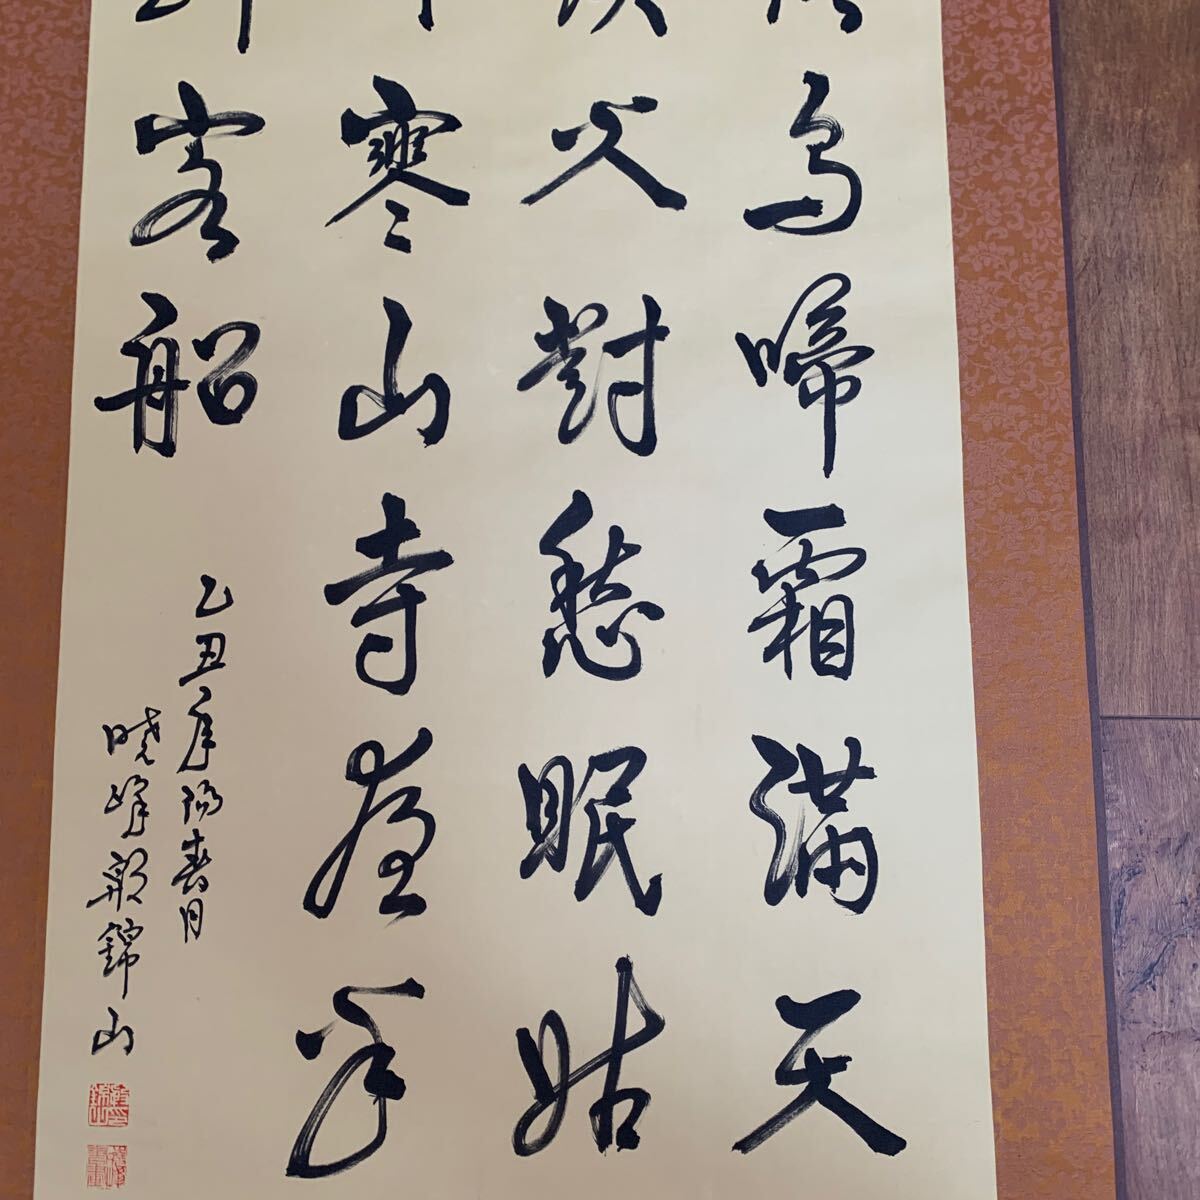 烏啼霜滿天
火對愁眠姑
寒山寺夜半
客船
乙丑年陽春月
曉峰錦山